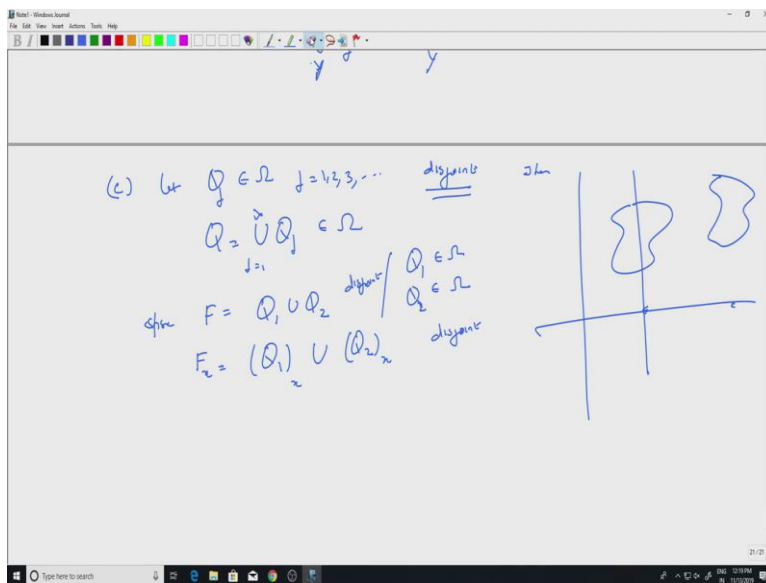 Note1 - Windows Journal
File Edit View Insert Actions Tools Help
B I
y y
(c) let Q_j ∈ Ω j = 1, 2, 3, ... disjoint Then
Q = ∪_{j=1}^{∞} Q_j ∈ Ω
F = Q_1 ∪ Q_2 disjoint / Q_1 ∈ Ω
Q_2 ∈ Ω
F_x = (Q_1)_x ∪ (Q_2)_x disjoint
21 / 21
Type here to search
ENG 12:19 PM
IN 11/13/2019